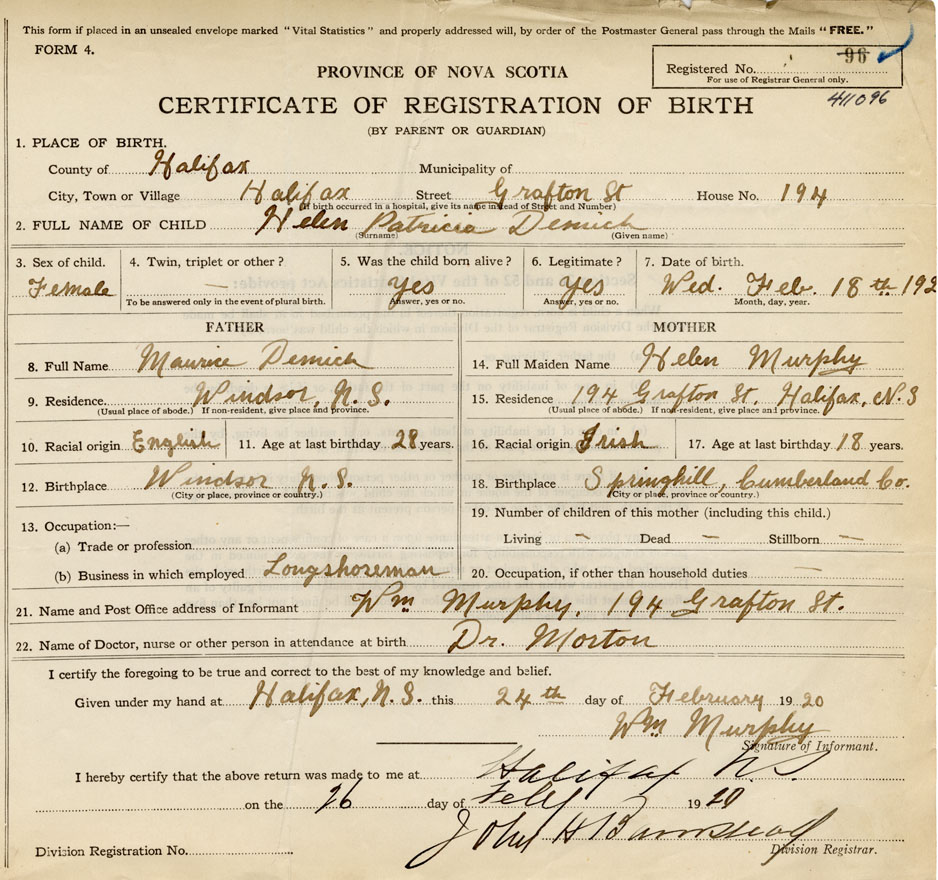 This form if placed in an unsealed envelope marked "Vital Statistics" and properly addressed will, by order of the Postmaster General pass through the Mails "FREE."
FORM 4.
96
PROVINCE OF NOVA SCOTIA
Registered No.
For use of Registrar General only.
CERTIFICATE OF REGISTRATION OF BIRTH
411096
(BY PARENT OR GUARDIAN)
1. PLACE OF BIRTH.
County of Halifax Municipality of
City, Town or Village Halifax Street Grafton St House No. 194
(If birth occurred in a hospital, give its name instead of Street and Number)
2. FULL NAME OF CHILD Helen Patricia Demich
(Surname) (Given name)
3. Sex of child. 4. Twin, triplet or other? 5. Was the child born alive? 6. Legitimate? 7. Date of birth.
Female — Yes Yes Wed. Feb. 18th 192
To be answered only in the event of plural birth. Answer, yes or no. Answer, yes or no. Month, day, year.
FATHER MOTHER
8. Full Name Maurice Demich 14. Full Maiden Name Helen Murphy
9. Residence Windsor, N.S. 15. Residence 194 Grafton St. Halifax, N.S
(Usual place of abode.) If non-resident, give place and province. (Usual place of abode.) If non-resident, give place and province.
10. Racial origin English 11. Age at last birthday 28 years. 16. Racial origin Irish 17. Age at last birthday 18 years.
12. Birthplace Windsor N.S. 18. Birthplace Springhill, Cumberland Co.
(City or place, province or country.) (City or place, province or country.)
13. Occupation:— 19. Number of children of this mother (including this child.)
(a) Trade or profession Living — Dead — Stillborn —
(b) Business in which employed Longshoreman 20. Occupation, if other than household duties —
21. Name and Post Office address of Informant Wm Murphy, 194 Grafton St.
22. Name of Doctor, nurse or other person in attendance at birth Dr. Morton
I certify the foregoing to be true and correct to the best of my knowledge and belief.
Given under my hand at Halifax, N.S. this 24th day of February 1920
Wm Murphy
Signature of Informant.
I hereby certify that the above return was made to me at Halifax N S
on the 26 day of Feby 1920
John H
Division Registration No. Division Registrar.